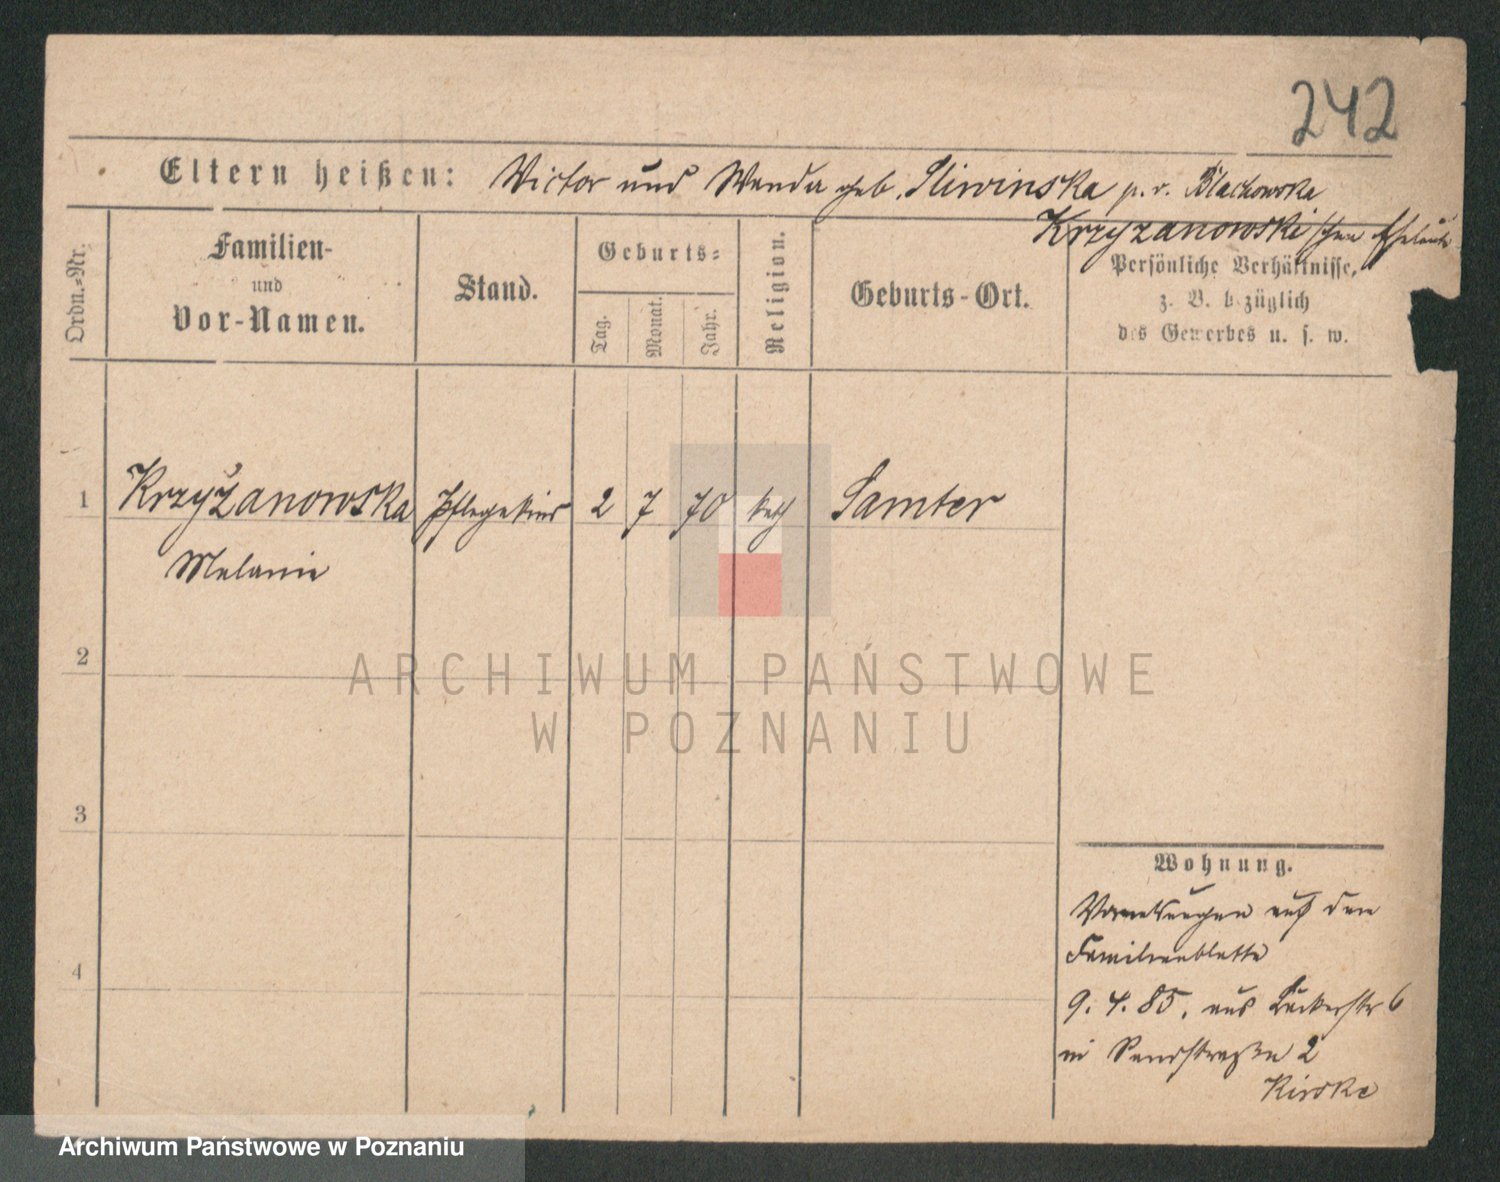 242
Eltern heißen: Victor und Wanda geb. Sliwinska p. v. Blachowska
Krzyzanowski'schen Eheleute
Ordn.=Nr.
Familien-
und
Vor-Namen.
Stand.
Geburts=
Tag.
Monat.
Jahr.
Religion.
Geburts-Ort.
Persönliche Verhältnisse,
z. B. bezüglich
des Gewerbes u. s. w.
1 Krzyżanowska Pflegekind 2 7 70 kath Samter
Melanie
2
ARCHIWUM PAŃSTWOWE
W POZNANIU
3
Wohnung.
auf dem
Familienblatte
4
9. 4. 85. aus Bäckerstr 6
in Sandstraße 2
Archiwum Państwowe w Poznaniu